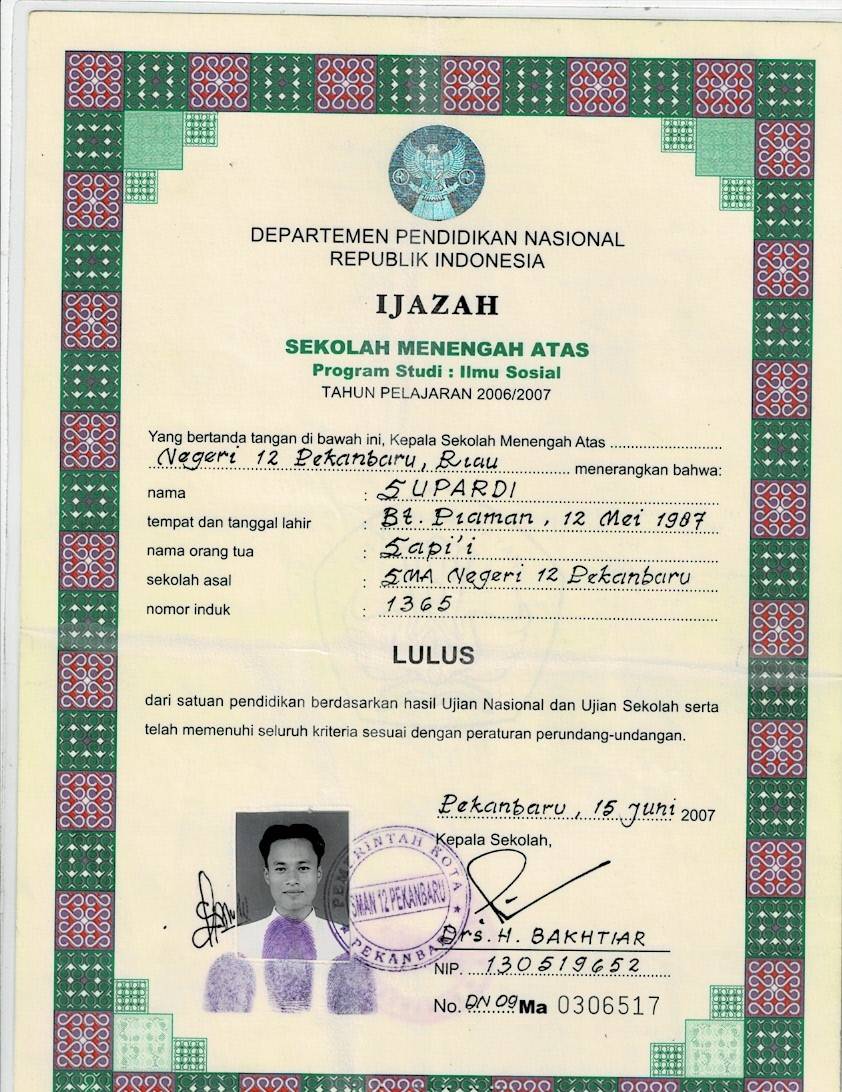 DEPARTEMEN PENDIDIKAN NASIONAL
REPUBLIK INDONESIA
IJAZAH
SEKOLAH MENENGAH ATAS
Program Studi : Ilmu Sosial
TAHUN PELAJARAN 2006/2007
Yang bertanda tangan di bawah ini, Kepala Sekolah Menengah Atas
Negeri 12 Pekanbaru, Riau menerangkan bahwa:
nama : SUPARDI
tempat dan tanggal lahir : Bt. Piaman, 12 Mei 1987
nama orang tua : Sapi'i
sekolah asal : SMA Negeri 12 Pekanbaru
nomor induk : 1365
LULUS
dari satuan pendidikan berdasarkan hasil Ujian Nasional dan Ujian Sekolah serta
telah memenuhi seluruh kriteria sesuai dengan peraturan perundang-undangan.
Pekanbaru, 15 Juni 2007
Kepala Sekolah,
PEMERINTAH KOTA
SMAN 12 PEKANBARU
PEKANBARU
Drs. H. BAKHTIAR
NIP. 130519652
No. DN 09 Ma 0306517